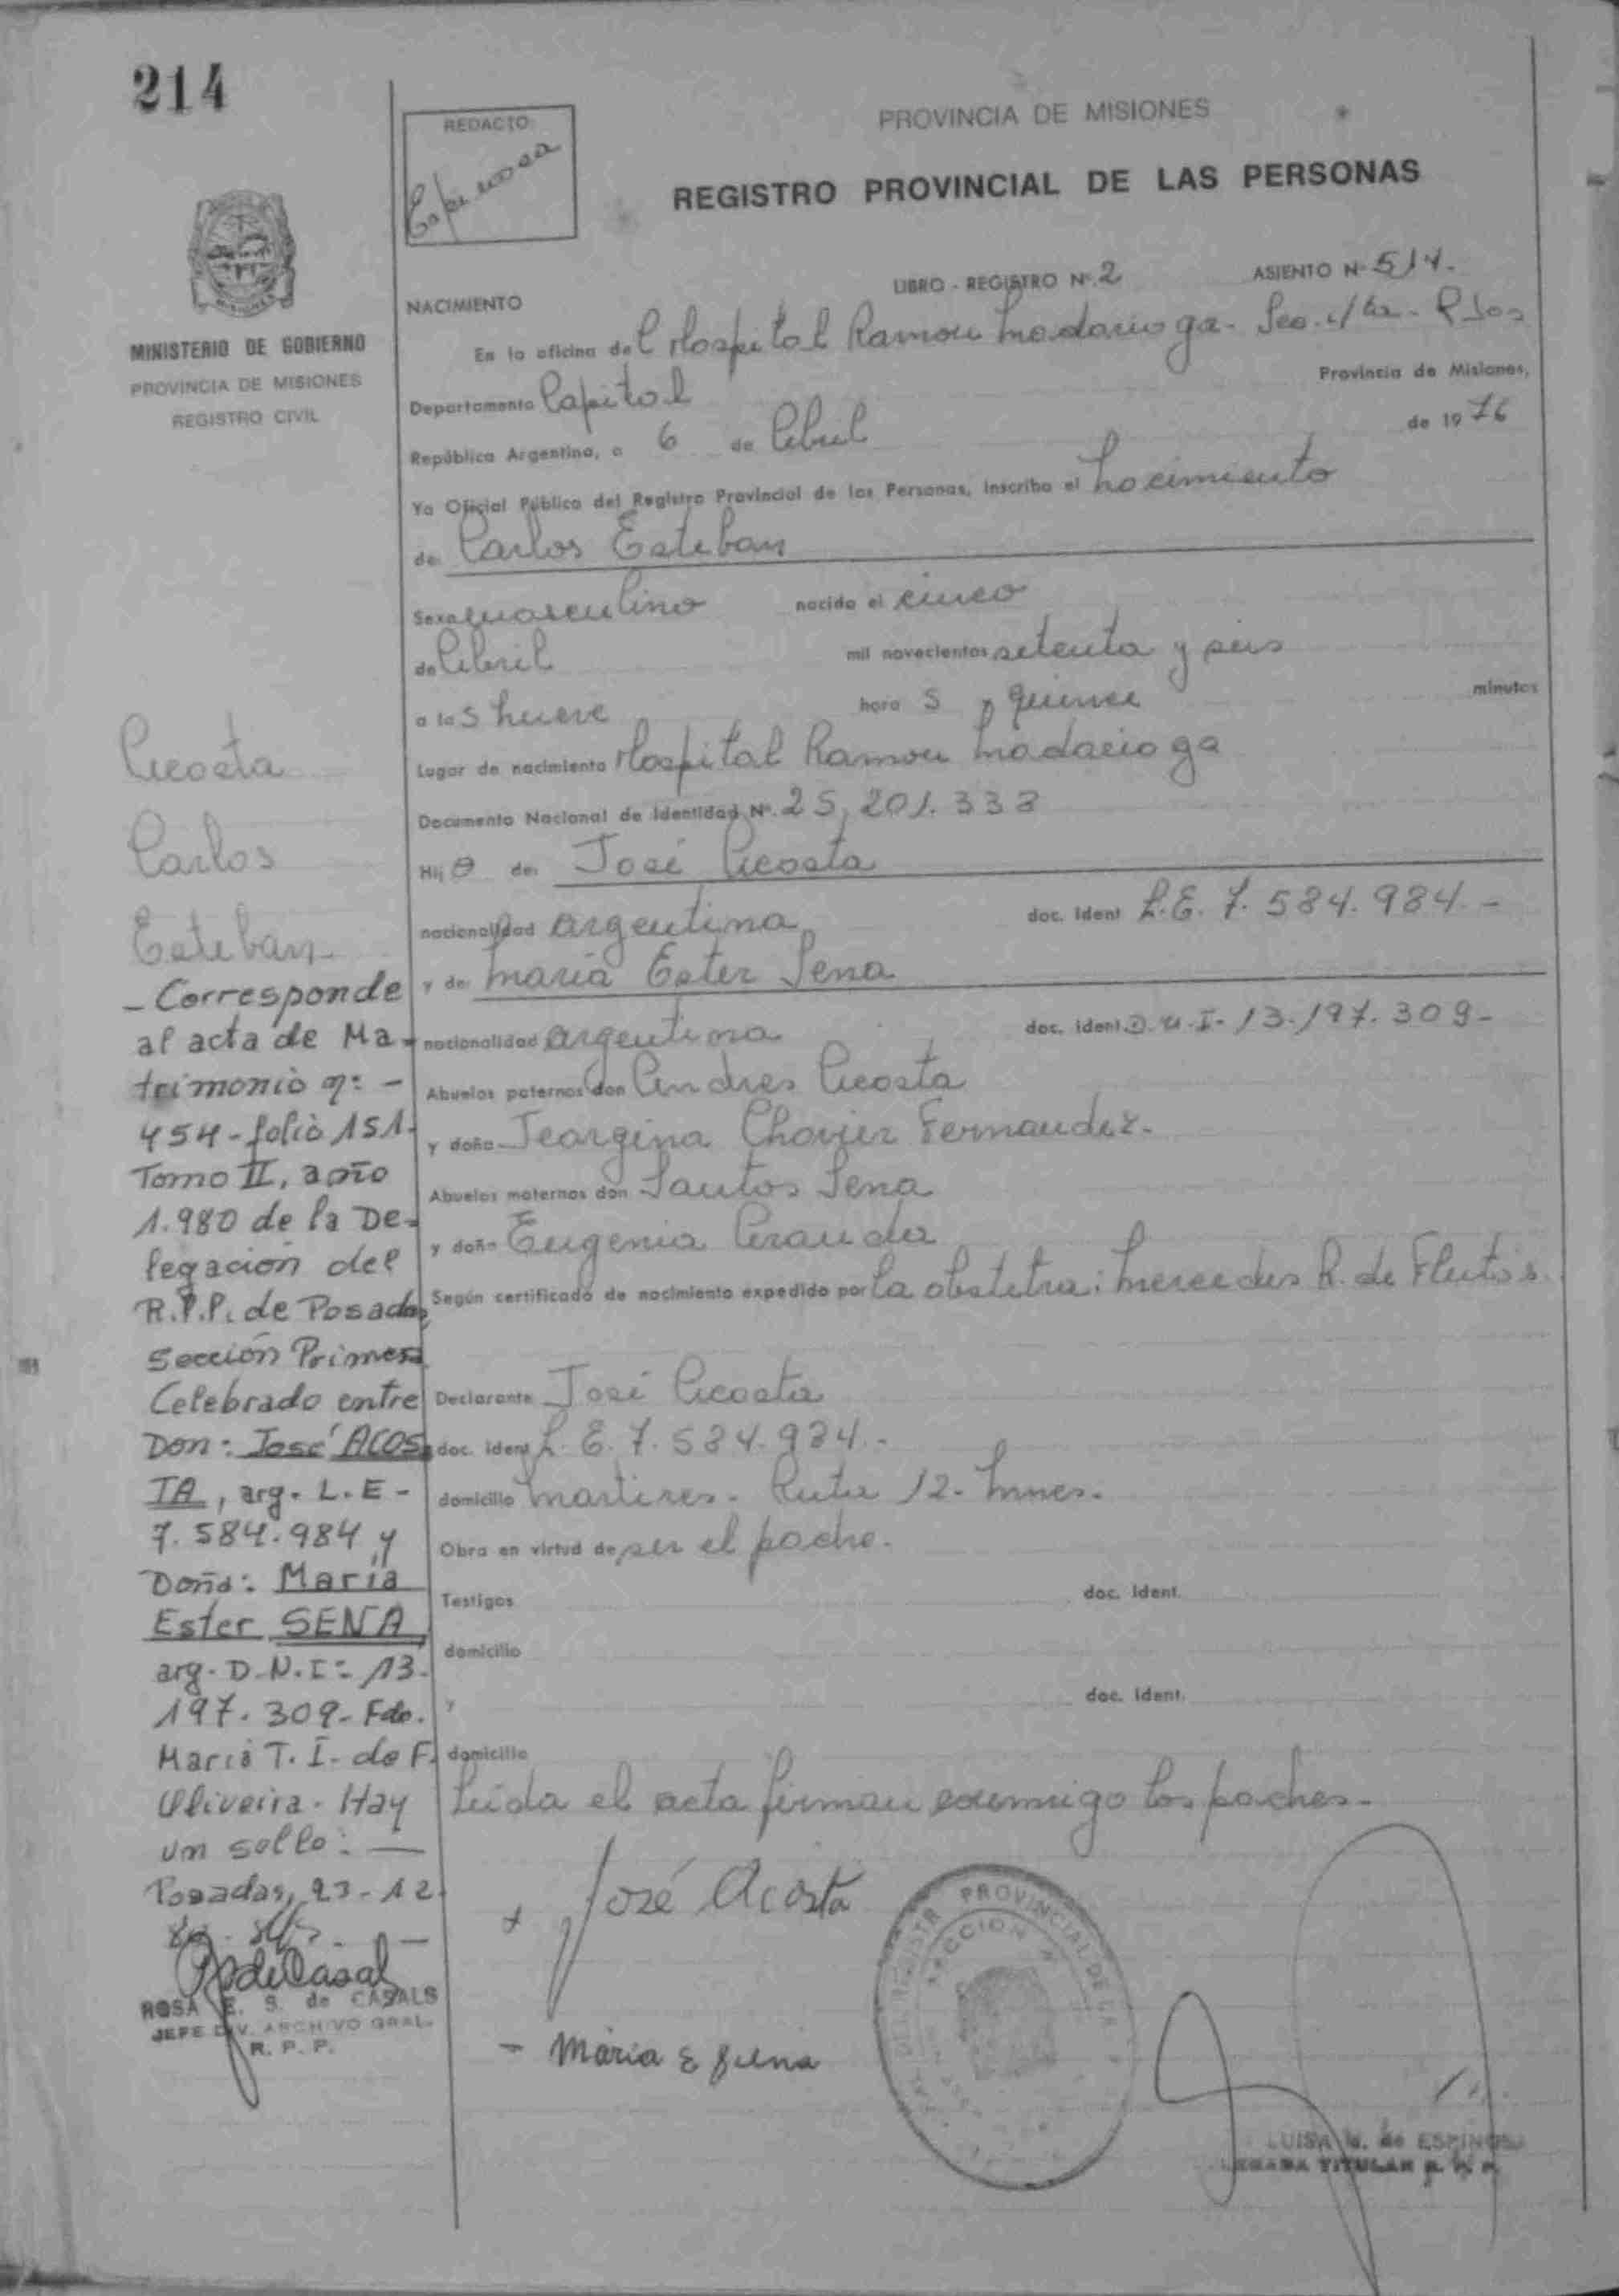 214
REDACTO:
Espinosa
PROVINCIA DE MISIONES
REGISTRO PROVINCIAL DE LAS PERSONAS
MINISTERIO DE GOBIERNO
PROVINCIA DE MISIONES
REGISTRO CIVIL
LIBRO - REGISTRO Nº. 2 ASIENTO Nº 514.-
NACIMIENTO
En la oficina del Hospital Ramon Madariaga -
Departamento Capital Provincia de Misiones,
República Argentina, a 6 de Abril de 1976
Yo Oficial Público del Registro Provincial de las Personas, inscribo el nacimiento
de: Carlos Esteban
Sexo masculino nacido el cinco
de Abril mil novecientos setenta y seis
a las nueve hora s y quince minutos
Lugar de nacimiento Hospital Ramon Madariaga
Documento Nacional de Identidad Nº. 25.201.333
Hij o de: José Acosta
nacionalidad argentina doc. ident L.E. 7.584.984.-
y de: Maria Ester Sena
nacionalidad argentina doc. ident. D.N.I. 13.197.309-
Abuelos paternos don Andres Acosta
y doña Jeorgina Fernandez.-
Abuelos maternos don Santos Sena
y doña Eugenia Aranda
Según certificado de nacimiento expedido por la obstetra: Mercedes R. de Fleitas
Declarante José Acosta
doc. ident L.E. 7.584.984.-
domicilio Martires - Ruta 12- Mnes.
Obra en virtud de ser el padre.
Testigos doc. ident.
domicilio
y doc. ident.
domicilio
Leida el acta firman conmigo los padres.-
José Acosta
Maria E Sena
LUISA de ESPINOSA
TITULAR R. P. P.
Acosta
Carlos
Esteban
- Corresponde
al acta de Ma-
trimonio nº: -
454 - folio 151.
Tomo II, año
1.980 de la De-
legación del
R.P.P. de Posadas
Sección Primera
Celebrado entre
Don: José ACOS
TA, arg. L.E -
7.584.984 y
Doña: María
Ester SENA,
arg. D.N.I: 13.
197.309- Fdo.
María T. I. de F.
Oliveira. Hay
un sello: —
Posadas, 23-12
ROSA E. S. de CASALS
JEFE DIV. ARCHIVO GRAL.
R. P. P.